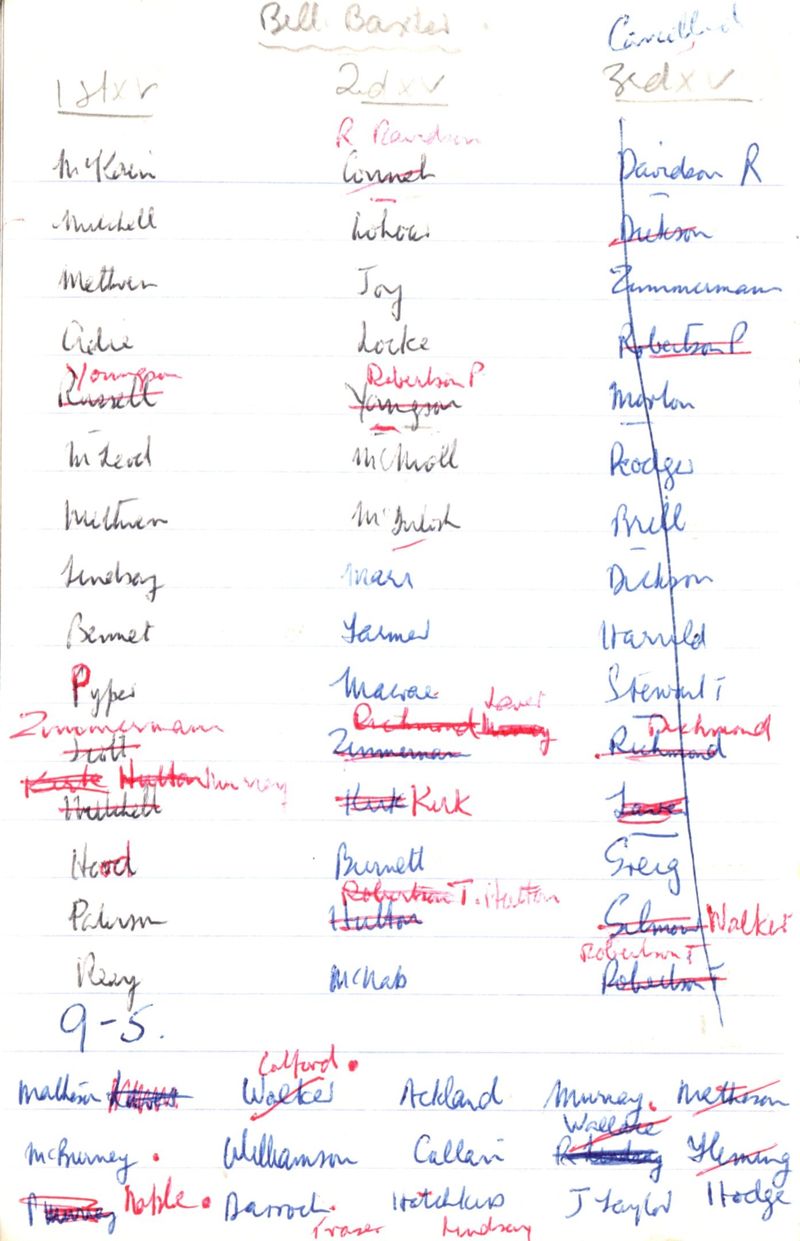 Bill Baxter. Cancelled
1st XV 2nd XV 3rd XV
R Davidson
Connel Davidson R
Mitchell Dickson
Methven Joy Zimmermann
Adie Locke Robertson P
Youngson Robertson P
Russell Youngson Morton
McLeod McNioll Rodger
Methven McIntosh Brill
Lindsay Marr Dickson
Bennet Farmer Harrold
Pyper Macrae Stewart T
Zimmermann Richmond Murray Laver Richmond
Scott Zimmerman Richmond
Kirk Hutton Murray
Mitchell Kirk Kirk Laver
Hood Burnett Greig
Robertson T. Hutton
Paterson Hutton Selmon Walker
Robertson T
Reay McNab Robertson T
9-5.
Calford.
Matheson Walker Ackland Murray. Matheson
Wallace
McBurney. Williamson Callan Fleming
Murray Noble. Barrock. Hotchkiss J Taylor Hodge
Fraser Lindsay